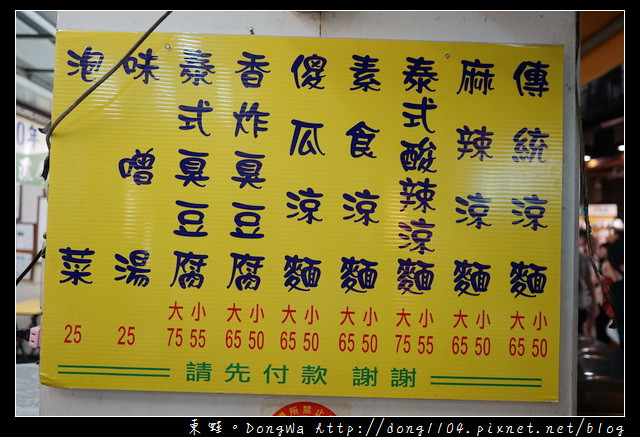 傳統涼麵
大 小
65 50
麻辣涼麵
大 小
65 50
泰式酸辣涼麵
大 小
75 55
素食涼麵
大 小
65 50
傻瓜涼麵
大 小
65 50
香炸臭豆腐
大 小
65 50
泰式臭豆腐
大 小
75 55
味噌湯
25
泡菜
25
請先付款 謝謝
所禁止
東野。DongWa http://dong1104.pixnet.net/blog